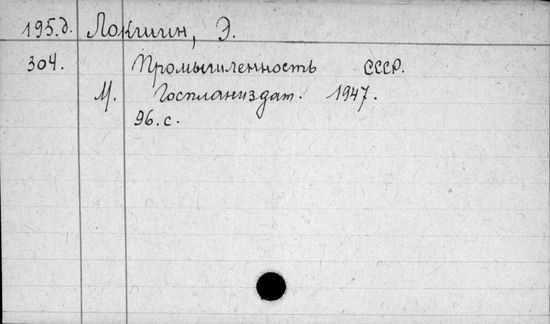 195.д. Локшин, Э.
304. Промышленность СССР.
М. Госпланиздат. 1947.
96.с.